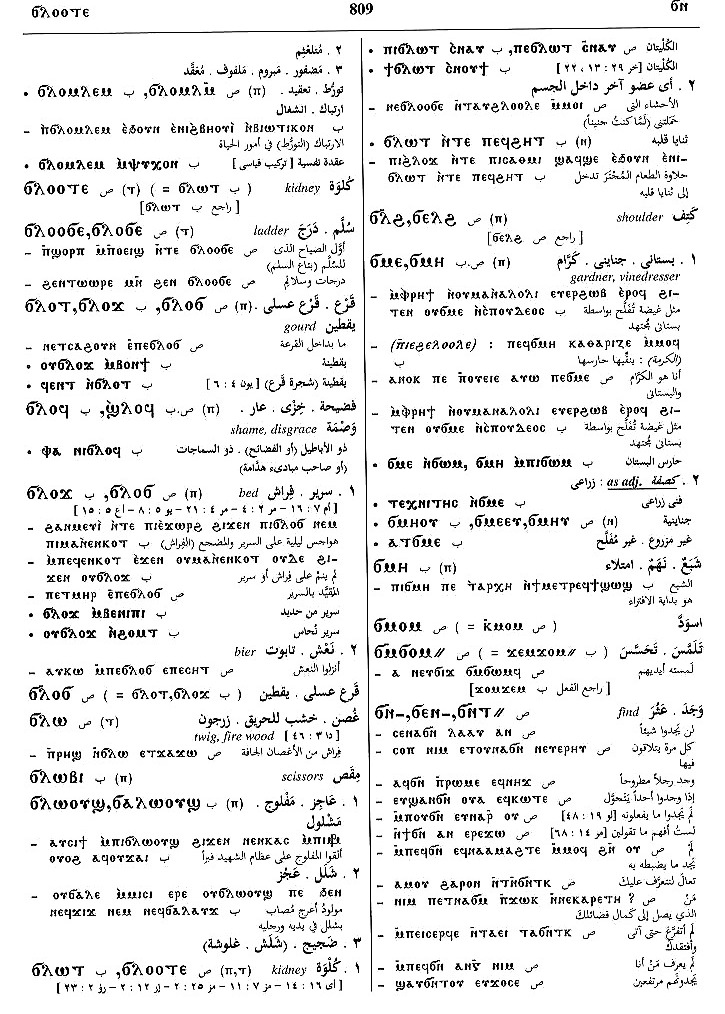 ϭⲗⲟⲟⲧⲉ 809 ϭⲛ
٢ . مُتلعْثِم
٣ . مَضفور . مَبروم . ملفوف . مُعَقَّد
ϭⲗⲟⲙⲗⲉⲙ ب ,ϭⲗⲟⲙⲗⲙ̄ ص (ⲡ) تورُّط . تعقيد .
ارتباك . انشغال
– ⲛ̀ϭⲗⲟⲙⲗⲉⲙ ⲉ̀ϧⲟⲩⲛ ⲉ̀ⲛⲓϩⲃⲏⲟⲩⲓ̀ ⲛ̀ⲃⲓⲱⲧⲓⲕⲟⲛ ب
الارتباك (التورُّط) في أمور الحياة
• ϭⲗⲟⲙⲗⲉⲙ ⲙ̀ⲯⲩⲭⲟⲛ ب عقدة نفسية [تركيب قياسى]
ϭⲗⲟⲟⲧⲉ ص (ⲧ) ( = ϭⲗⲱⲧ ب ) kidney كُلْوَة
[راجع ب ϭⲗⲱⲧ]
ϭⲗⲟⲟϭⲉ,ϭⲗⲟϭⲉ ص (ⲧ) ladder سُلَّم . دَرَجَ
– ⲡ̄ϣⲟⲣⲡ ⲙ̄ⲡⲟⲉⲓϣ ⲛ̄ⲧⲉ ϭⲗⲟⲟϭⲉ ص أوَّل الصياح الذى
للسُلَّم (بتاع السلم)
– ϩⲉⲛⲧⲱⲱⲣⲉ ⲙⲛ̄ ϩⲉⲛ ϭⲗⲟⲟϭⲉ ص درجات وسلالم
ϭⲗⲟⲧ,ϭⲗⲟϫ ب ,ϭⲗⲟϭ ص (ⲡ) قَرْع . قَرْع عسلى .
gourd يقطين
– ⲛⲉⲧⲥⲁϩⲟⲩⲛ ⲉ̄ⲡⲉϭⲗⲟϭ ص ما بداخل القرعة
• ⲟⲩϭⲗⲟϫ ⲙ̀ⲃⲟⲛϯ ب يقطينة
• ϥⲉⲛⲧ ⲛ̀ϭⲗⲟⲧ ب يقطينة (شجرة قَرْع) [يون ٤ : ٦]
ϭⲗⲟϥ ب ,ϣ̀ⲗⲟϥ ص.ب (ⲡ) فضيحة . خِزْى . عار .
shame, disgrace وَصْمَة
• ⲫⲁ ⲛⲓϭⲗⲟϥ ب ذو الأباطيل (أو الفضائح) . ذو السماجات
(أو صاحب مبادىء هدَّامة)
ϭⲗⲟϫ ب ,ϭⲗⲟϭ ص (ⲡ) bed ١ . سرير . فِراش
[أم ٧ : ١٦ – مر ٢ : ٤ – مر ٤ : ٢١ – يو ٥ : ٨ – أع ٥ : ١٥]
– ϩⲁⲛⲙⲉⲩⲓ̀ ⲛ̀ⲧⲉ ⲡⲓⲉ̀ϫⲱⲣϩ ϩⲓϫⲉⲛ ⲡⲓϭⲗⲟϭ ⲛⲉⲙ
ⲡⲓⲙⲁⲛ̀ⲉⲛⲕⲟⲧ ب هواجس ليلية على السرير والمضجع (الفِراش)
– ⲙ̀ⲡⲉϥⲉⲛⲕⲟⲧ ⲉ̀ϫⲉⲛ ⲟⲩⲙⲁⲛ̀ⲉⲛⲕⲟⲧ ⲟⲩⲇⲉ ϩⲓ-
ϫⲉⲛ ⲟⲩϭⲗⲟϫ ب لم ينمْ على فِراش أو سرير
– ⲡⲉⲧⲙⲏⲣ ⲉ̄ⲡⲉϭⲗⲟϭ ص المُقيَّد بالسرير
• ϭⲗⲟϫ ⲙ̀ⲃⲉⲛⲓⲡⲓ ب سرير من حديد
• ⲟⲩϭⲗⲟϫ ⲛ̀ϩⲟⲙⲧ ب سرير نُحاس
bier ٢ . نَعْش . تابوت
– ⲁⲩⲕⲱ ⲙ̄ⲡⲉϭⲗⲟϭ ⲉⲡⲉⲥⲏⲧ ص أنزلوا النعش
ϭⲗⲟϭ ص ( = ϭⲗⲟⲧ,ϭⲗⲟϫ ب ) قَرع عسلى . يقطين
ϭⲗⲱ ص (ⲧ) غُصن . خشب للحريق . زرجون
twig, fire wood [دا ٣ : ٤٦]
– ⲡ̄ⲣⲏϣ ⲛ̄ϭⲗⲱ ⲉⲧϫⲁϫⲱ ص فِراش من الأغصان الجافة
ϭⲗⲱⲃⲓ ب (ⲡ) scissors مِقَص
ϭⲗⲱⲟⲩϣ,ϭⲁⲗⲱⲟⲩϣ ب (ⲡ) ١ . عاجز . مَفْلوج .
مَشْلول
– ⲁⲩⲥⲓϯ ⲙ̀ⲡⲓϭⲗⲱⲟⲩϣ ϩⲓϫⲉⲛ ⲛⲉⲛⲕⲁⲥ
ⲟⲩⲟϩ ⲁϥⲟⲩϫⲁⲓ ب ألقوا المفلوج على عظام الشهيد فبرأ
٢ . شَلَل . عَجْز
– ⲟⲩϭⲁⲗⲉ ⲙ̀ⲙⲓⲥⲓ ⲉⲣⲉ ⲟⲩϭⲗⲱⲟⲩϣ ⲡⲉ ϧⲉⲛ
ⲛⲉϥϫⲓϫ ⲛⲉⲙ ⲛⲉϥϭⲁⲗⲁⲩϫ ب مولودٌ أعرج مُصاب
بشلل في يديه ورجليه
٣ . ضَجيج . (شَلَش . غلوشة)
ϭⲗⲱⲧ ب ,ϭⲗⲟⲟⲧⲉ ص (ⲡ,ⲧ) kidney ١ . كُلْوَة
[أى ١٦ : ١٤ – مز ٧ : ١١ – مز ٢٥ : ٢ – إر ١٢ : ٢ – رؤ ٢ : ٢٣]
• ⲡⲓϭⲗⲱⲧ ⲥ̄ⲛⲁⲩ ب ,ⲡⲉϭⲗⲱⲧ ⲥ̄ⲛⲁⲩ ص الكُلْيتان
• ϯϭⲗⲱⲧ ⲥ̀ⲛⲟⲩϯ ب الكُلْيتان [خر ٢٩ : ١٣ ، ٢٢]
٢ . أى عضو آخر داخل الجسم
– ⲛⲉϭⲗⲟⲟϭⲉ ⲛ̄ⲧⲁⲩϩⲗⲟⲟⲗⲉ ⲙ̄ⲙⲟⲓ ص الأحشاء التى
حَمَلتنى (لَمَّا كنتُ جنيناً)
• ϭⲗⲱⲧ ⲛ̀ⲧⲉ ⲡⲉϥϩⲏⲧ ب (ⲡ) ثنايا قلبه
– ⲡⲓϩⲗⲟϫ ⲛ̀ⲧⲉ ⲡⲓⲥⲁⲟⲙⲓ ϣⲁϥϣⲉ ⲉ̀ϧⲟⲩⲛ ⲉ̀ⲛⲓ-
ϭⲗⲱⲧ ⲛ̀ⲧⲉ ⲡⲉϥϩⲏⲧ ب حلاوة الطعام تدخل
إلى ثنايا قلبه
ϭⲗϩ,ϭⲉⲗϩ ص (ⲡ) shoulder كَتِف
[راجع ص ϭⲉⲗϩ]
ϭⲙⲉ,ϭⲙⲏ ص.ب (ⲡ) ١ . بستانى . جناينى . كَرَّام
gardner, vinedresser
– ⲙ̀ⲫⲣⲏϯ ⲛ̀ⲟⲩⲙⲁⲛ̀ⲁⲗⲟⲗⲓ ⲉⲩⲉⲣϩⲱⲃ ⲉ̀ⲣⲟϥ ϩⲓ-
ⲧⲉⲛ ⲟⲩϭⲙⲉ ⲛ̀ⲥⲡⲟⲩⲇⲉⲟⲥ ب مثل غيضة تُفْلَح بواسطة
بستانى مُجتهد
– (ⲡⲓⲉϩⲉⲗⲟⲟⲗⲉ) : ⲡⲉϥϭⲙⲏ ⲕⲁⲑⲁⲣⲓⲍⲉ ⲙ̀ⲙⲟϥ
ب (الكرمة) : ينقِّيها حارسها
– ⲁⲛⲟⲕ ⲡⲉ ⲡ̄ⲟⲩⲉⲓⲉ ⲁⲩⲱ ⲡⲉϭⲙⲉ ص أنا هو الكرَّام
والبستانى
– ⲙ̀ⲫⲣⲏϯ ⲛ̀ⲟⲩⲙⲁⲛ̀ⲁⲗⲟⲗⲓ ⲉⲩⲉⲣϩⲱⲃ ⲉ̀ⲣⲟϥ ϩⲓ-
ⲧⲉⲛ ⲟⲩϭⲙⲉ ⲛ̀ⲥⲡⲟⲩⲇⲉⲟⲥ ب مثل غيضة تُفْلَح بواسطة
بستانى مُجتهد
• ϭⲙⲉ ⲛ̀ϭⲱⲙ, ϭⲙⲏ ⲙ̀ⲡⲓϭⲱⲙ ب حارس البستان
٢ . كصفة as adj. : زراعى
• ⲧⲉⲭⲛⲓⲧⲏⲥ ⲛ̀ϭⲙⲉ ب فنى زراعى
• ϭⲙⲏⲟⲩ ب ,ϭⲙⲉⲉⲩ,ϭⲙⲏⲩ ص (ⲡ) جناينية
• ⲁⲧϭⲙⲉ ب غير مزروع . غير مُفْلَّح
ϭⲙⲏ ب (ⲡ) شَبَع . نَهَم . امتلاء
– ⲡⲓϭⲙⲏ ⲡⲉ ⲧⲁⲣⲭⲏ ⲛ̀ϯⲙⲉⲧⲣⲉϥϯϣⲱϣ ب الشبع
هو بداية الافتراء
ϭⲙⲟⲙ ( = ⲕ̀ⲙⲟⲙ ص ) اسودَّ
ϭⲙϭⲟⲙ// ص ( = ϫⲉⲙϫⲟⲙ// ب ) تَلَمَّسَ . تَحَسَّسَ
– ⲁ ⲛⲉⲧϭⲓϫ ϭⲙ̄ϭⲱⲙϥ ص لمسته أيديهم
[راجع الفعل ب ϫⲟⲙϫⲉⲙ]
ϭⲛ̄-,ϭⲉⲛ-,ϭⲛ̄ⲧ// ص find وَجَدَ . عَثُرَ
– ⲥⲉⲛⲁϭⲛ̄ ⲗⲁⲁⲩ ⲁⲛ ص لن يجدوا شيئاً
– ⲥⲟⲡ ⲛⲓⲙ ⲉⲧⲟⲩⲛⲁϭⲛ̄ ⲛⲉⲩⲉⲣⲏⲩ ص كل مرة يتلاقون
فيها
– ⲁϥϭⲛ̄ ⲡ̄ⲣⲱⲙⲉ ⲉϥⲛⲏϫ ص وجد رجلاً مطروحاً
– ⲉⲩϣⲁⲛϭⲛ̄ ⲟⲩⲁ ⲉϥⲕⲱⲧⲉ ص إذا وجدوا أحداً يَتَجوَّل
– ⲙ̄ⲡⲟⲩϭⲛ̄ ⲉⲧⲛⲁⲣ̄ ⲟⲩ ص لم يجدوا ما يفعلونه [لو ١٩ : ٤٨]
– ⲛ̄ϯϭⲛ̄ ⲁⲛ ⲉⲣⲉϫⲱ ص لستُ أفهم ما تقولين [مر ١٤ : ٦٨]
– ⲙ̄ⲡⲉϥϭⲛ̄ ⲉϥⲛⲁⲁⲙⲁϩⲧⲉ ⲙ̄ⲙⲟϥ ϩⲛ̄ ⲟⲩ ص لم
يجد ما يضبطه به
– ⲁⲙⲟⲩ ϣⲁⲣⲟⲛ ⲛ̄ⲧⲛ̄ϭⲛ̄ⲧⲕ ص تعالَ لنتعرَّف عليك
– ⲛⲓⲙ ⲡⲉⲧⲛⲁϭⲛ̄ ⲡ̄ϫⲱⲕ ⲛ̄ⲛⲉⲕⲁⲣⲉⲧⲏ ? ص مَنْ
الذى يصل إلى كمال فضائلك
– ⲙ̄ⲡⲉⲓⲥⲉⲣϥⲉ ⲛ̄ⲧⲁⲉⲓ ⲧⲁϭⲛ̄ⲧⲕ ص لم أتفرَّغ حتى آتى
وأفتقدك
– ⲙ̄ⲡⲉϥϭⲛ̄ ⲁⲛⲅ̄ ⲛⲓⲙ ص لم يعرف مَنْ أنا
– ϣⲁⲩϭⲛ̄ⲧⲟⲩ ⲉⲩϫⲟⲥⲉ ص يجدونهم مرتفعين